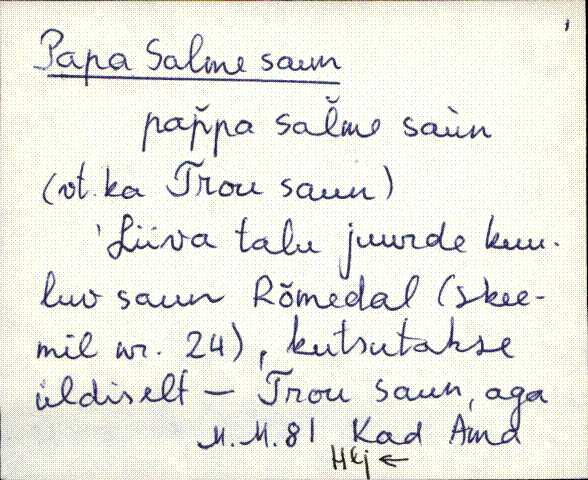 Papa Salme saun
pap̆pa sal̆me saùn
(vt. ka Trou saun)
'Liiva talu juurde kuu-
luv saun Rõmedal (skee-
mil nr. 24), kutsutakse
üldiselt — Trou saun, aga
M.M.81 Kad Ama
HKj ←